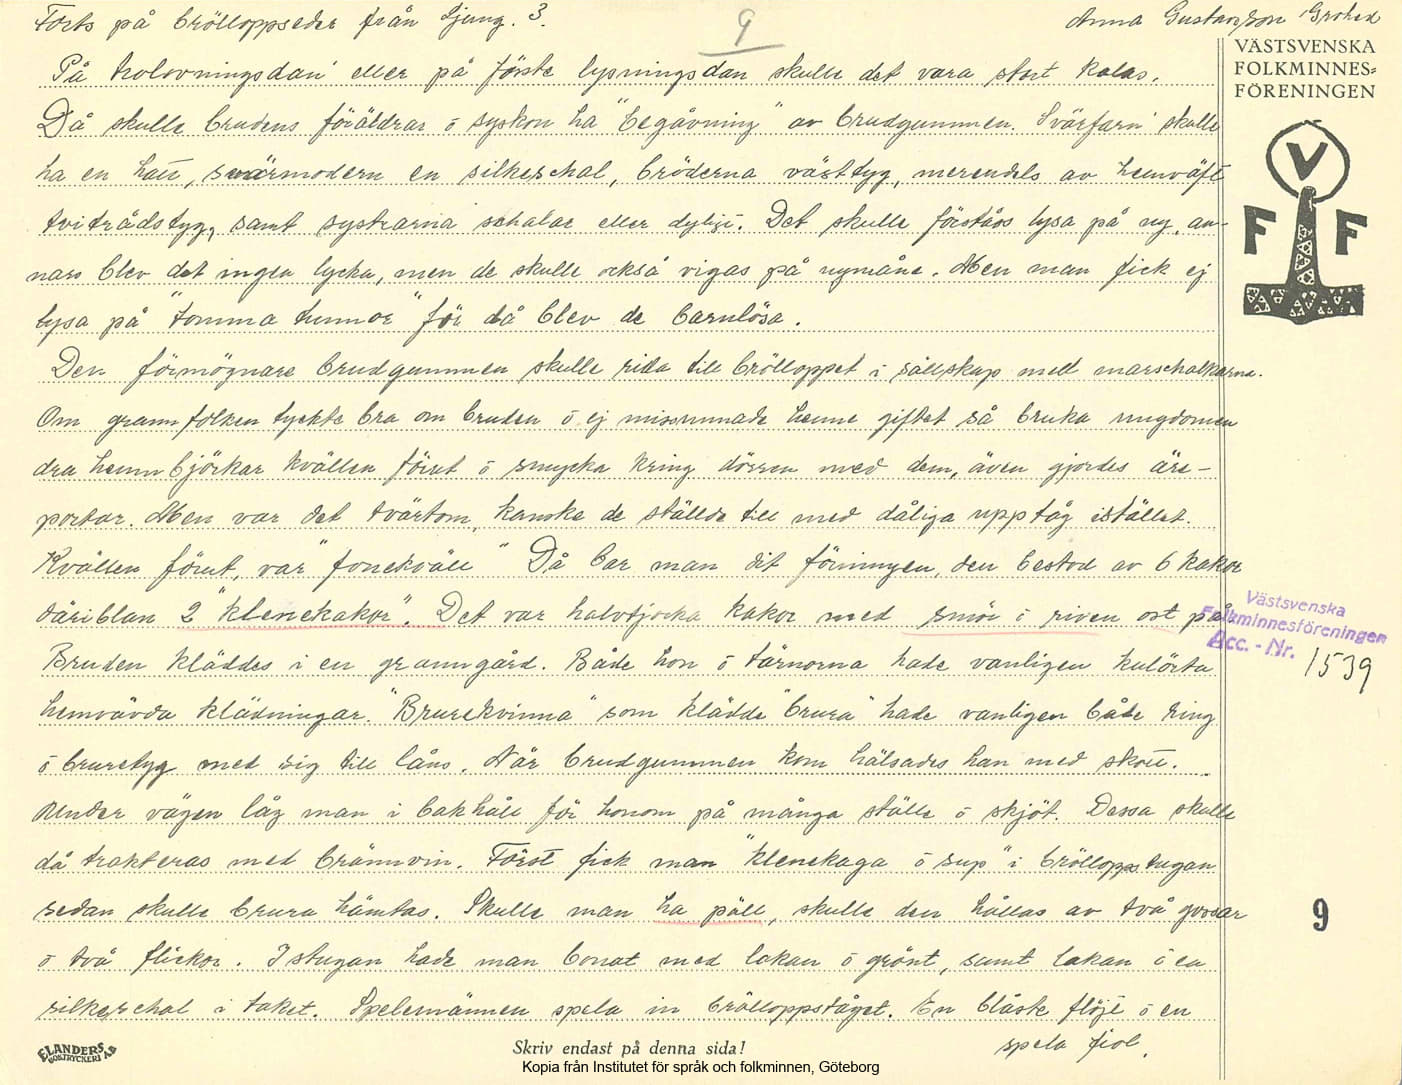 Forts på bröllopsseder från Ljung. 3.
9
Anna Gustavsson Grohed
VÄSTSVENSKA
FOLKMINNES-
FÖRENINGEN
V
F F
På trolovningsdan' eller på förste lysningsdan skulle det vara stort kalas.
Då skulle brudens föräldrar ö syskon ha "begåvning" av brudgummen. Svärfarn' skulle
ha en hatt, svärmodern en silkeschal, bröderna västtyg, merendels av hemväft
tvitrådstyg, samt systrarna schalar eller dyligt. Det skulle förståss lysa på ny, an-
nars blev det ingen lycka, men de skulle också vigas på nymåne. Men man fick ej
lysa på "tomma tunnor" för då blev de barnlösa.
Den förmögnare brudgummen skulle rida till bröllopet i sällskap med marschalkarna.
Om grannfolken tyckte bra om bruden ö ej missunnade henne giftet så bruka ungdomen
dra hemm björkar kvällen förut ö smycka kring dörren med dem, även gjordes äre-
portar. Men var det tvärtom, kanske de ställde till med dåliga upptåg istället.
Kvällen förut, var "fonekväll" Då bar man dit förningen, den bestod av 6 kakor
däriblan 2 "klenekakor". Det var halvtjocka kakor med smör ö riven ost på
Bruden kläddes i en granngård. Både hon ö tärnorna hade vanligen kulörta
hemvävda klädningar. "Brurekvinna" som klädde "brura" hade vanligen både ring
ö bruretyg med sig till låns. När brudgummen kom hälsades han med skott.
Under vägen låg man i bakhåll för honom på många ställe ö skjöt. Dessa skulle
då trakteras med brännvin. Först fick man "klenekaga ö sup" i bröllopsstugan
sedan skulle brura hämtas. Skulle man ha päll, skulle den hållas av två gossar
ö två flickor. I stugan hade man bonat med lakan ö grönt, samt lakan ö en
silkeschal i taket. Spelemännen spela in bröllopståget. En blåste flöjt ö en
spela fiol.
Västsvenska
Folkminnesföreningen
Acc. - Nr. 1539
9
ELANDERS
BOKTRYCKERI A.B
Skriv endast på denna sida!
Kopia från Institutet för språk och folkminnen, Göteborg